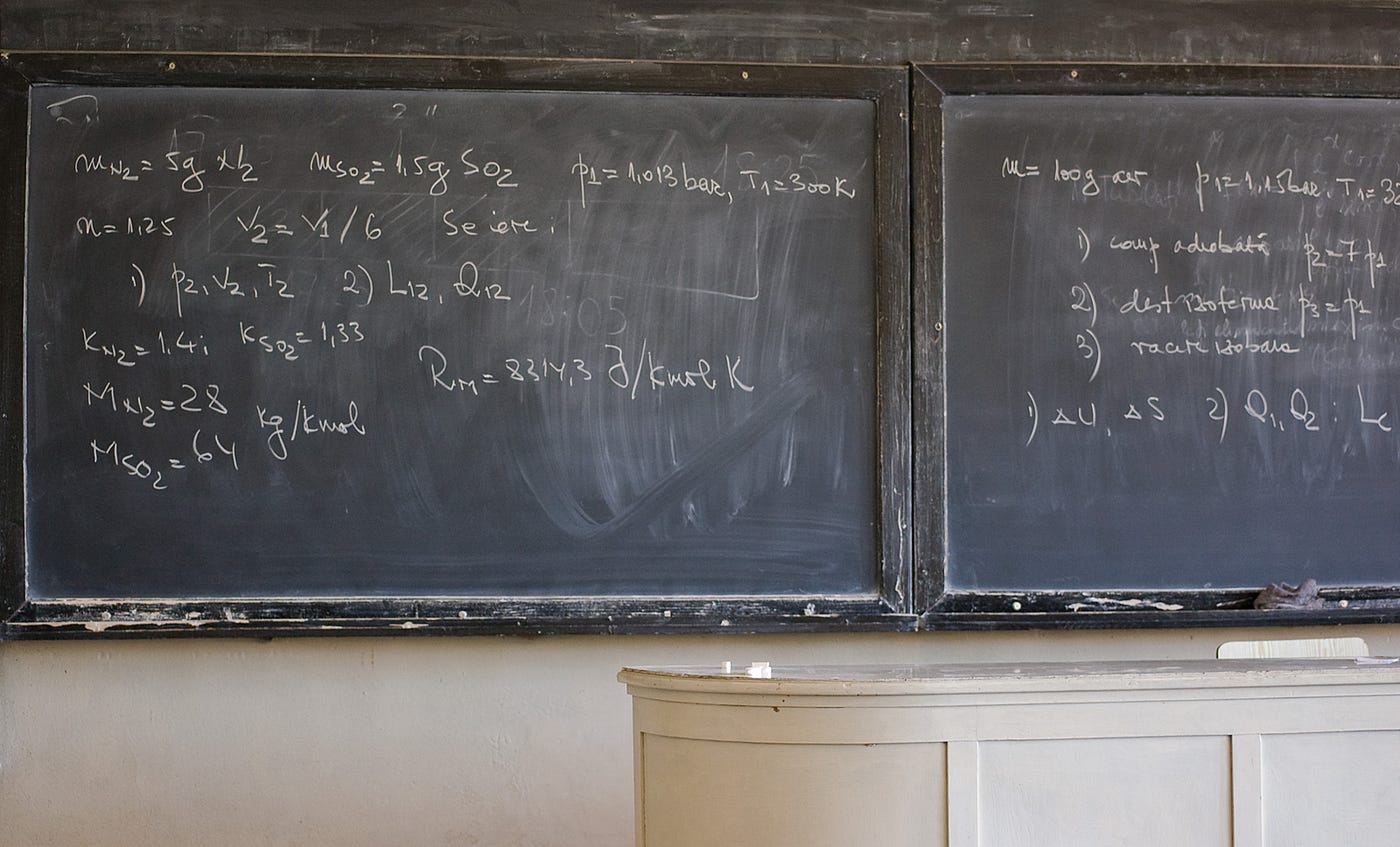 m_N₂ = 5g N₂   m_SO₂ = 1,5g SO₂   p₁ = 1,013 bar, T₁ = 300K
n = 1,25   V₂ = V₁/6   Se cere:
1) p₂, V₂, T₂   2) L₁₂, Q₁₂
K_N₂ = 1,4; K_SO₂ = 1,33
R_M = 8314,3 J/kmol K
M_N₂ = 28
kg/kmol
M_SO₂ = 64
m = 100g aer   p₁ = 1,15 bar, T₁ = 3
1) comp adiabată p₂ = 7 p₁
2) dest izoterma p₃ = p₁
3) racire izobara
1) ΔU, ΔS   2) Q₁, Q₂; L